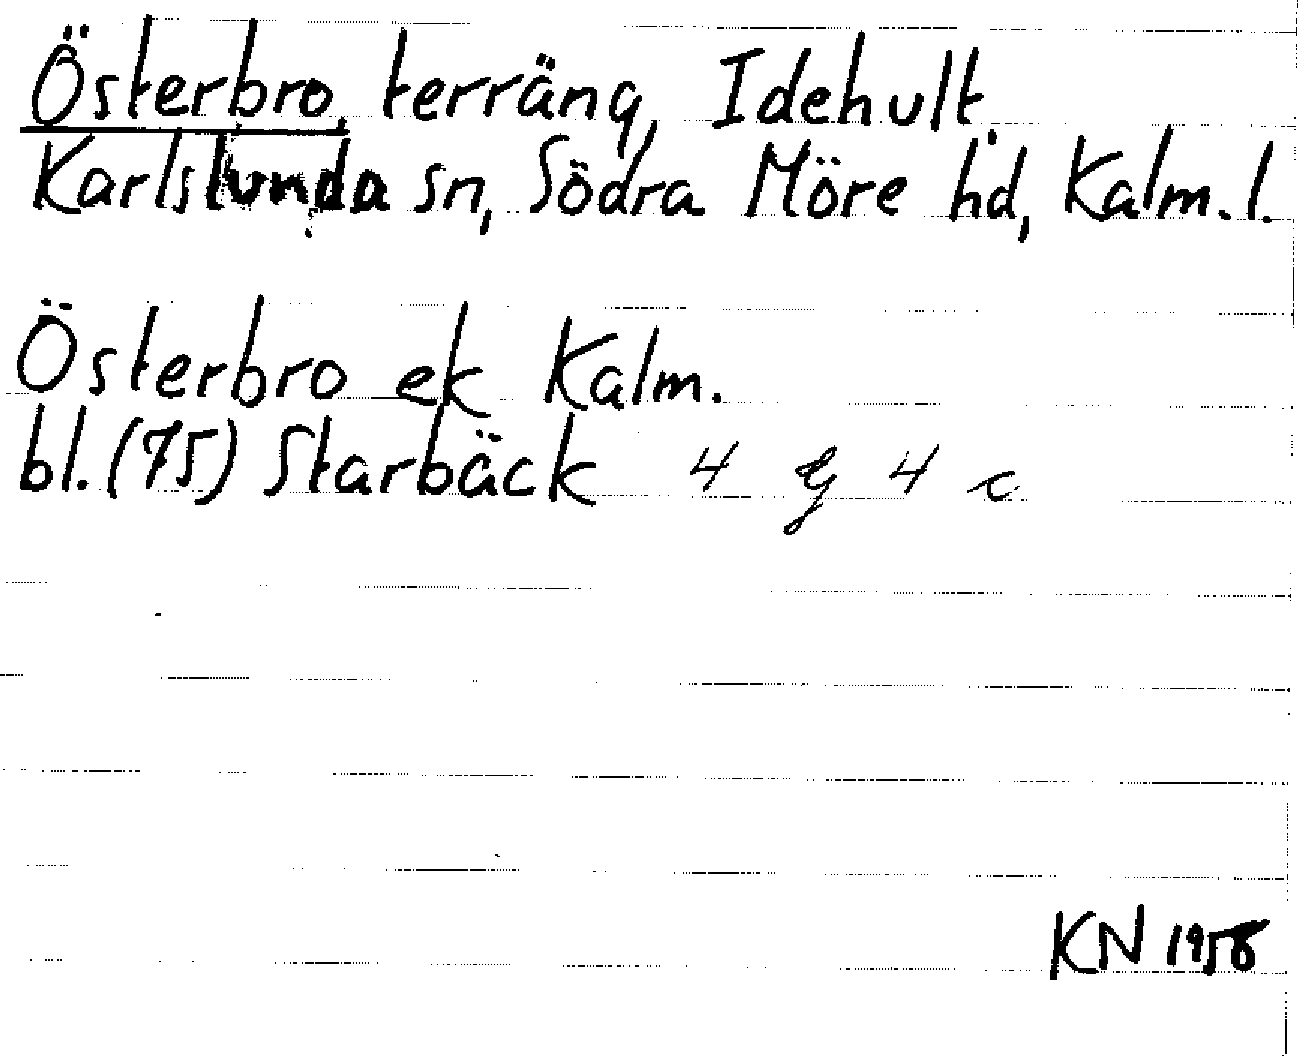 Österbro, terräng, Idehult.
Karlslunda sn, Södra Möre hd, Kalm. l.
Österbro ek Kalm.
bl. (75) Starbäck 4 G 4 c
KN 1958